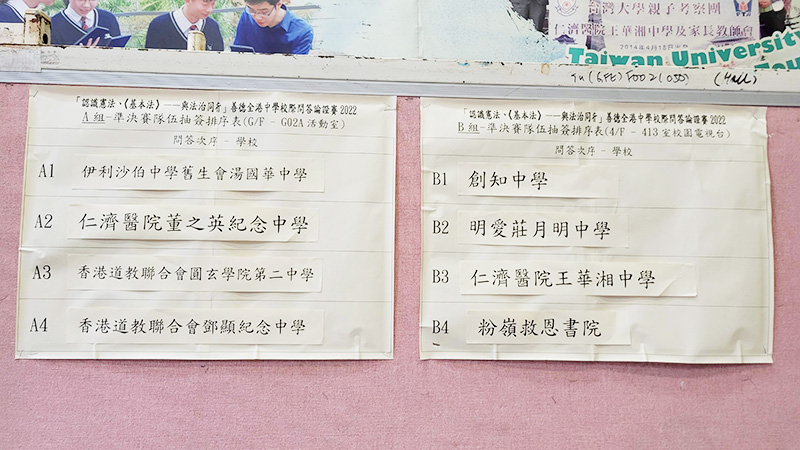 台灣大學親子考察團
仁濟醫院王華湘中學及家長教師會
2014年4月
Taiwan University
「認識憲法、《基本法》——與法治同行」善德全港中學校際問答論證賽2022
A組-準決賽隊伍抽簽排序表(G/F - G02A活動室)
問答次序 - 學校
A1 伊利沙伯中學舊生會湯國華中學
A2 仁濟醫院董之英紀念中學
A3 香港道教聯合會圓玄學院第二中學
A4 香港道教聯合會鄧顯紀念中學
「認識憲法、《基本法》——與法治同行」善德全港中學校際問答論證賽2022
B組-準決賽隊伍抽簽排序表(4/F - 413室校園電視台)
問答次序 - 學校
B1 創知中學
B2 明愛莊月明中學
B3 仁濟醫院王華湘中學
B4 粉嶺救恩書院